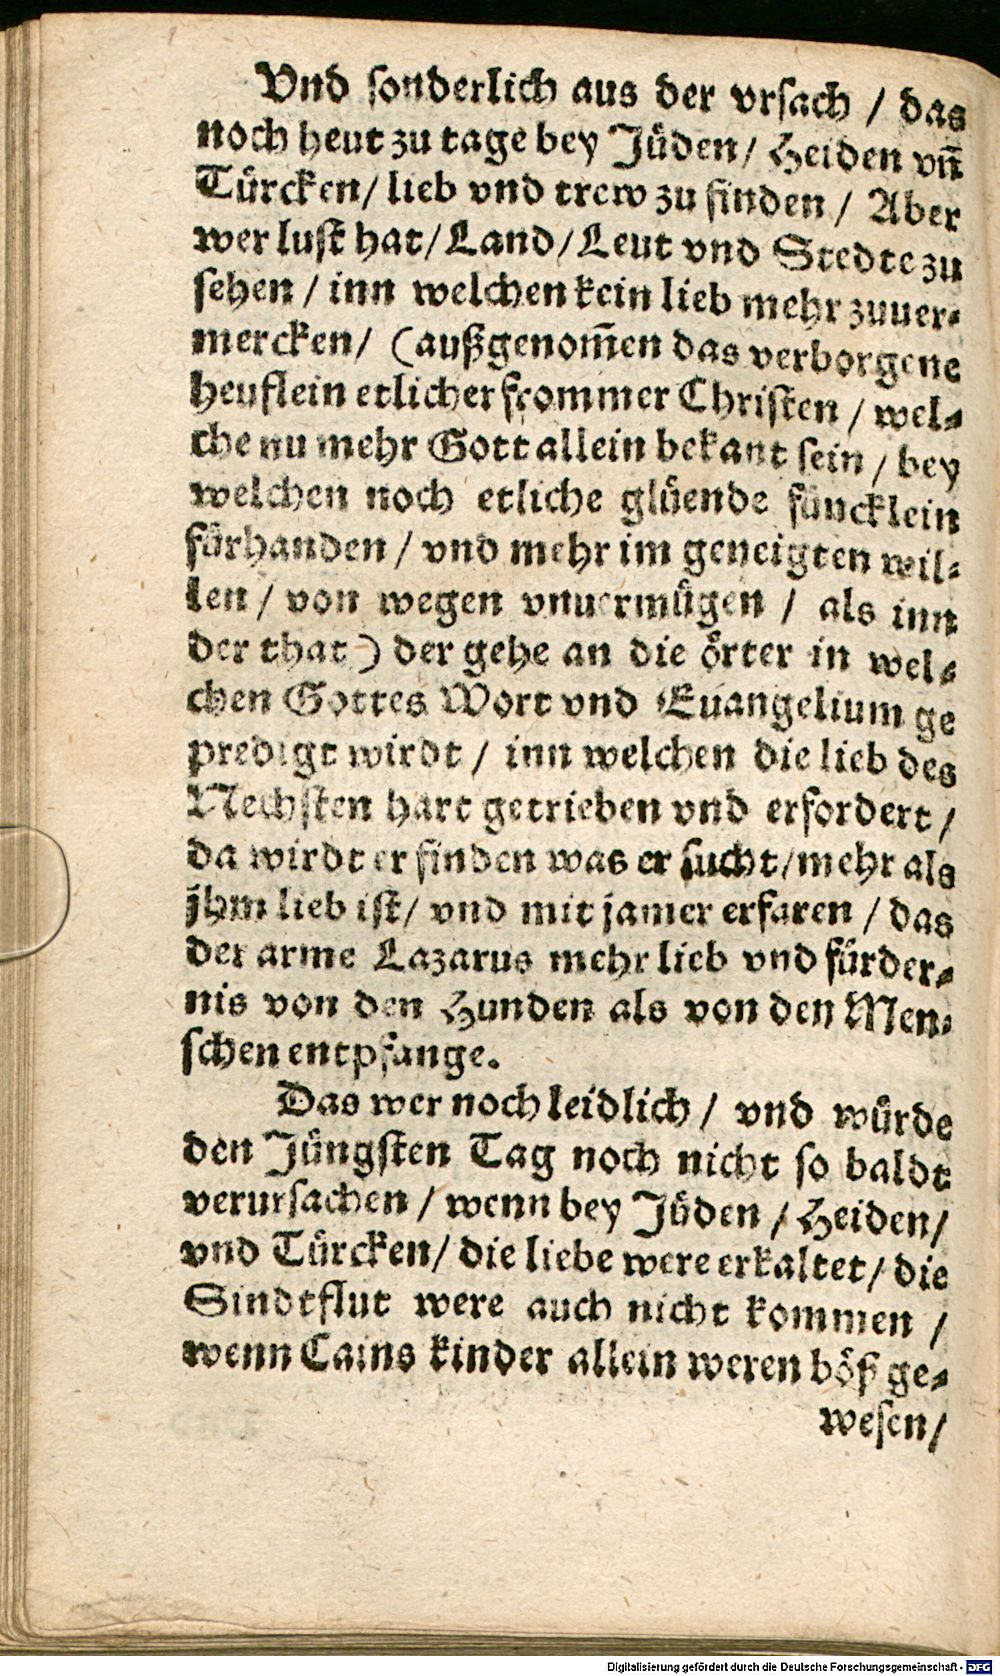 Vnd ſonderlich aus der vrſach / das
noch heut zu tage bey Jüden / Heiden vñ
Türcken / lieb vnd trew zu finden / Aber
wer luſt hat / Land / Leut vnd Stedte zu
ſehen / inn welchen kein lieb mehr zuuer-
mercken / (außgenom̃en das verborgene
heuflein etlicher frommer Chriſten / wel-
che nu mehr Gott allein bekant ſein / bey
welchen noch etliche glüende füncklein
fürhanden / vnd mehr im geneigten wil-
len / von wegen vnuermügen / als inn
der that) der gehe an die örter in wel-
chen Gottes Wort vnd Euangelium ge
predigt wirdt / inn welchen die lieb des
Nechſten hart getrieben vnd erfordert /
da wirdt er finden was er ſucht / mehr als
jhm lieb iſt / vnd mit jamer erfaren / das
der arme Lazarus mehr lieb vnd fürder-
nis von den Hunden als von den Men-
ſchen entpfange.
Das wer noch leidlich / vnd würde
den Jüngſten Tag noch nicht ſo baldt
verurſachen / wenn bey Jüden / Heiden /
vnd Türcken / die liebe were erkaltet / die
Sindtflut were auch nicht kommen /
wenn Cains kinder allein weren böß ge-
weſen /
Digitalisierung gefördert durch die Deutsche Forschungsgemeinschaft - DFG